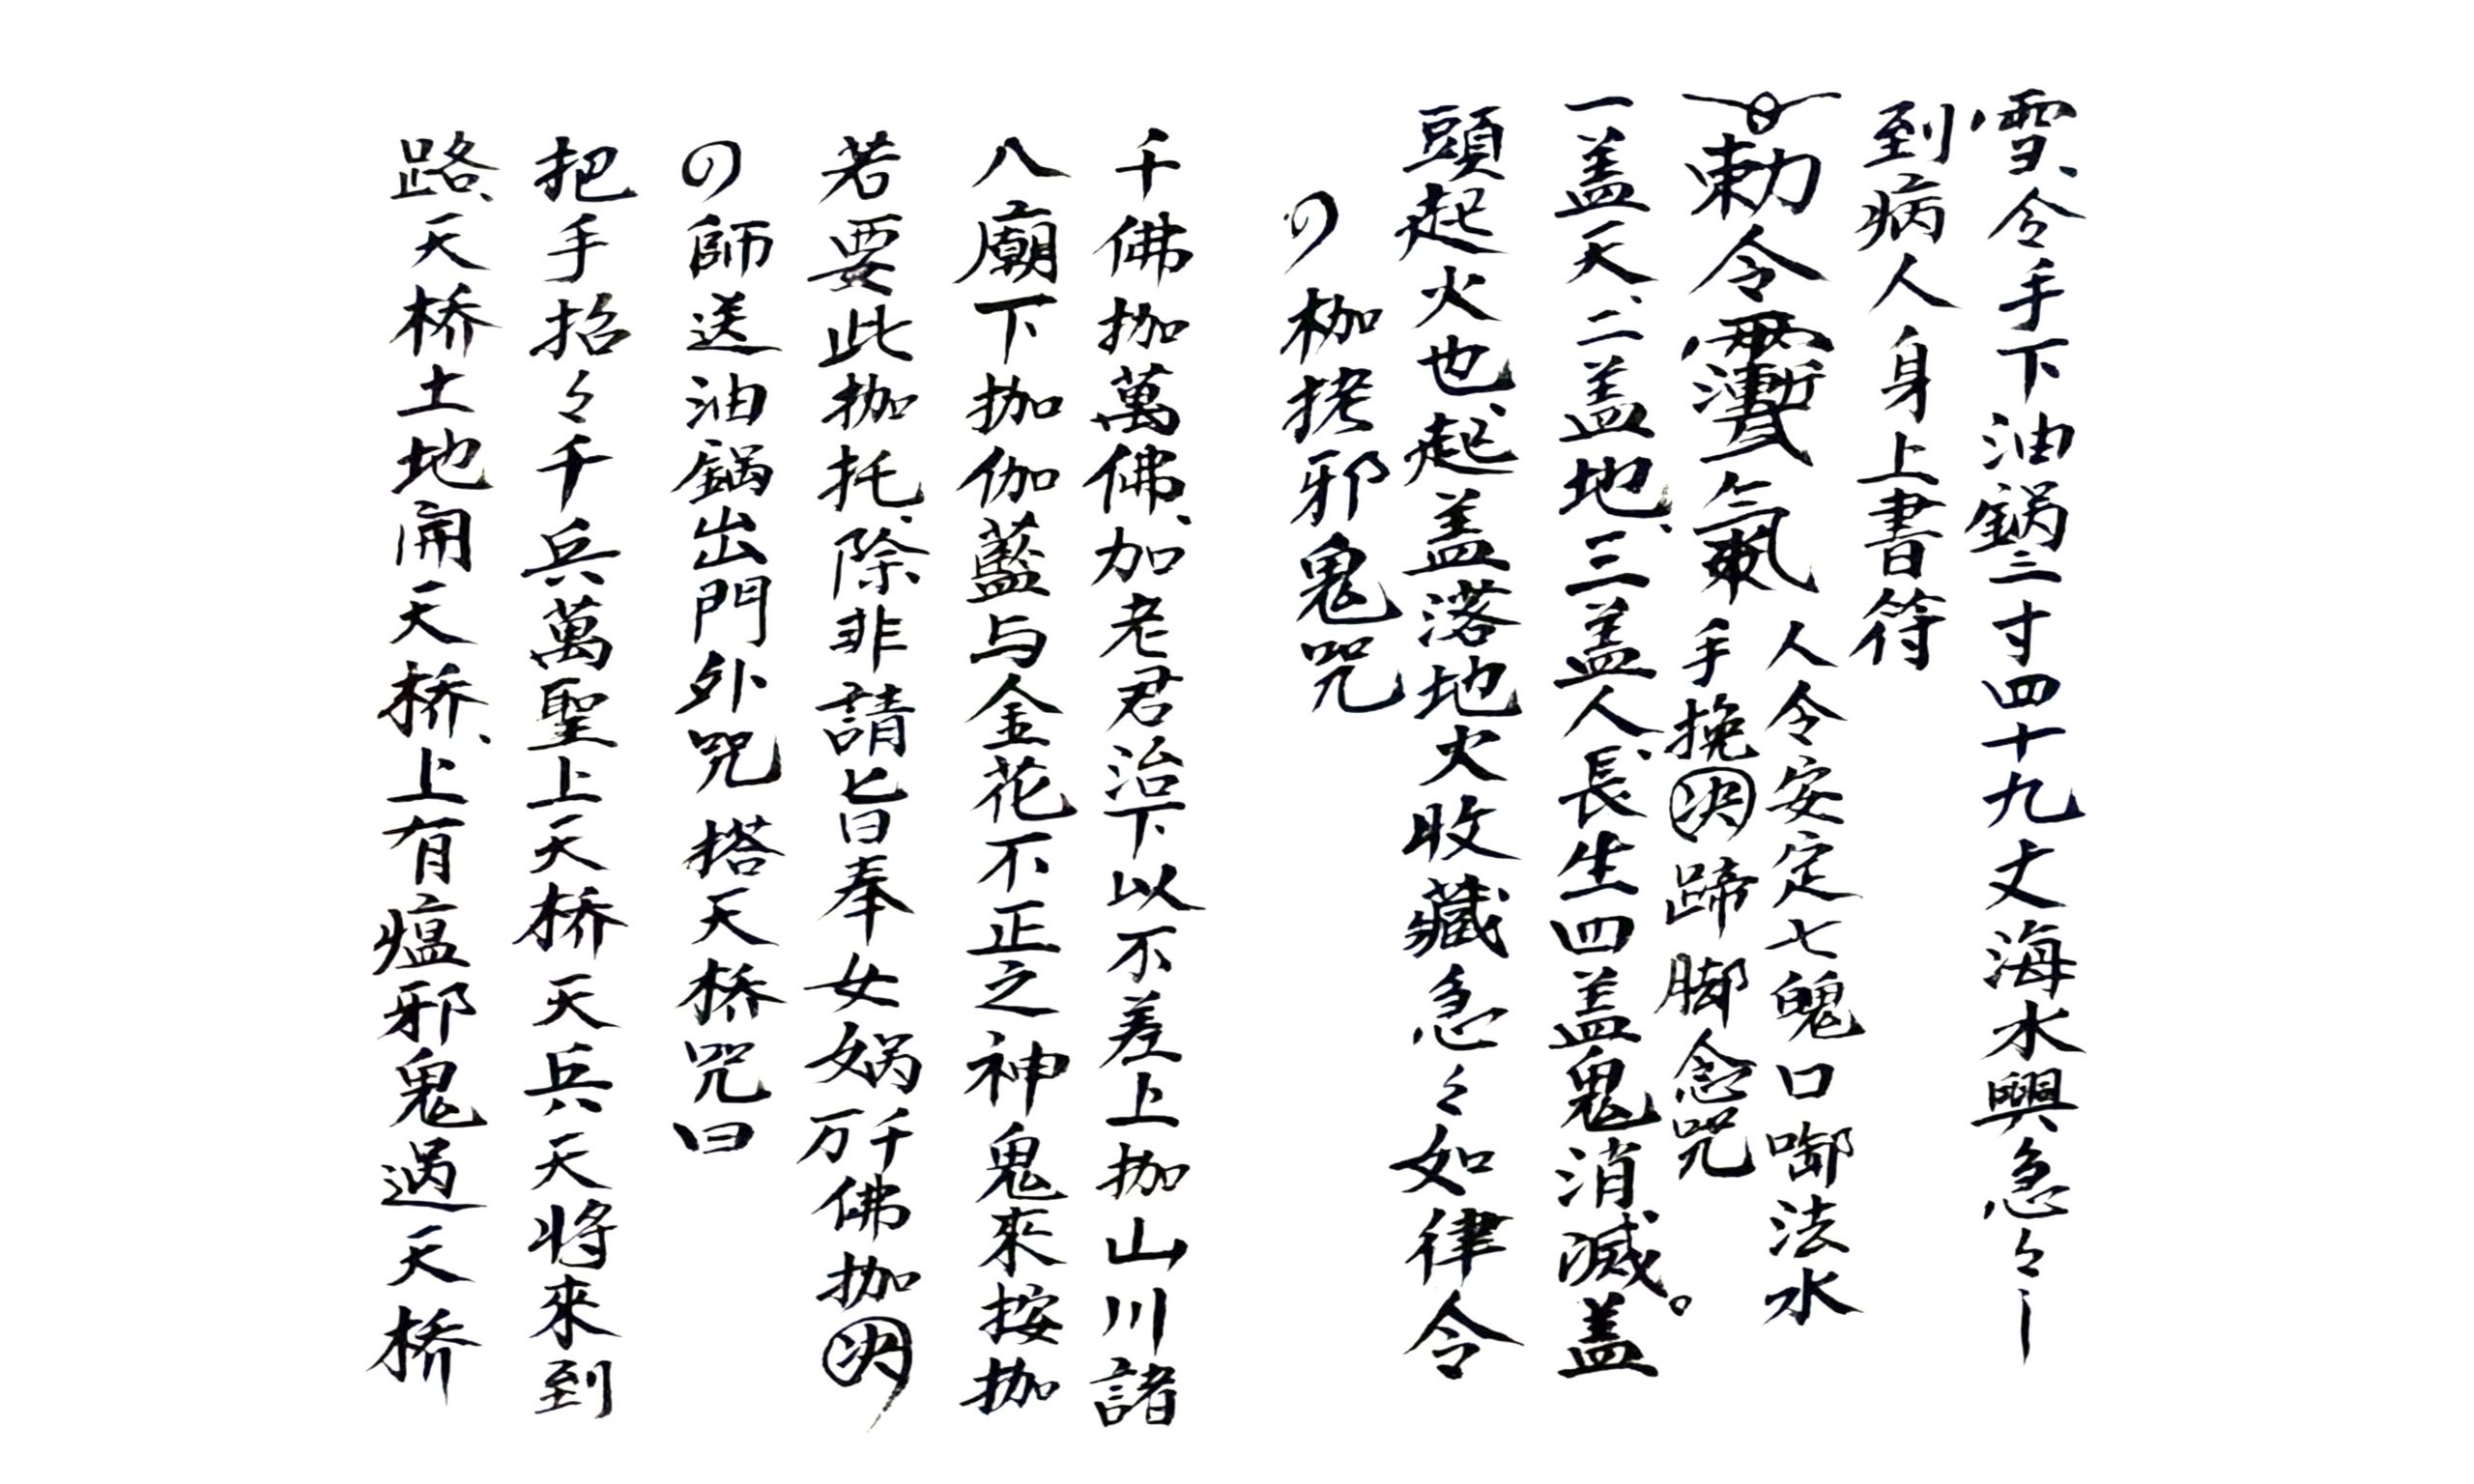 雪、令手下油鍋三寸四十九丈海水興急々
到病人身上書符
勅令 氣
人令安定七魄口啣法水
手挽決蹄脚念咒
一盖天、二盖地、三盖人、長生四盖鬼消滅。盖
頭起火也、起盖落地火收藏急々如律令
の枷拷邪鬼咒
千佛拁萬佛、加老君治下以不差上拁山川諸
八廟下拁伽藍与金花不正之神鬼來按拁
若要此拁托、除非請旨奉女媧万千佛拁決
の師送油鍋出門外咒 搭天橋咒曰
把手招々千兵萬聖上天橋天兵天将來到
路、天橋土地開天橋、上有瘟邪鬼過天橋